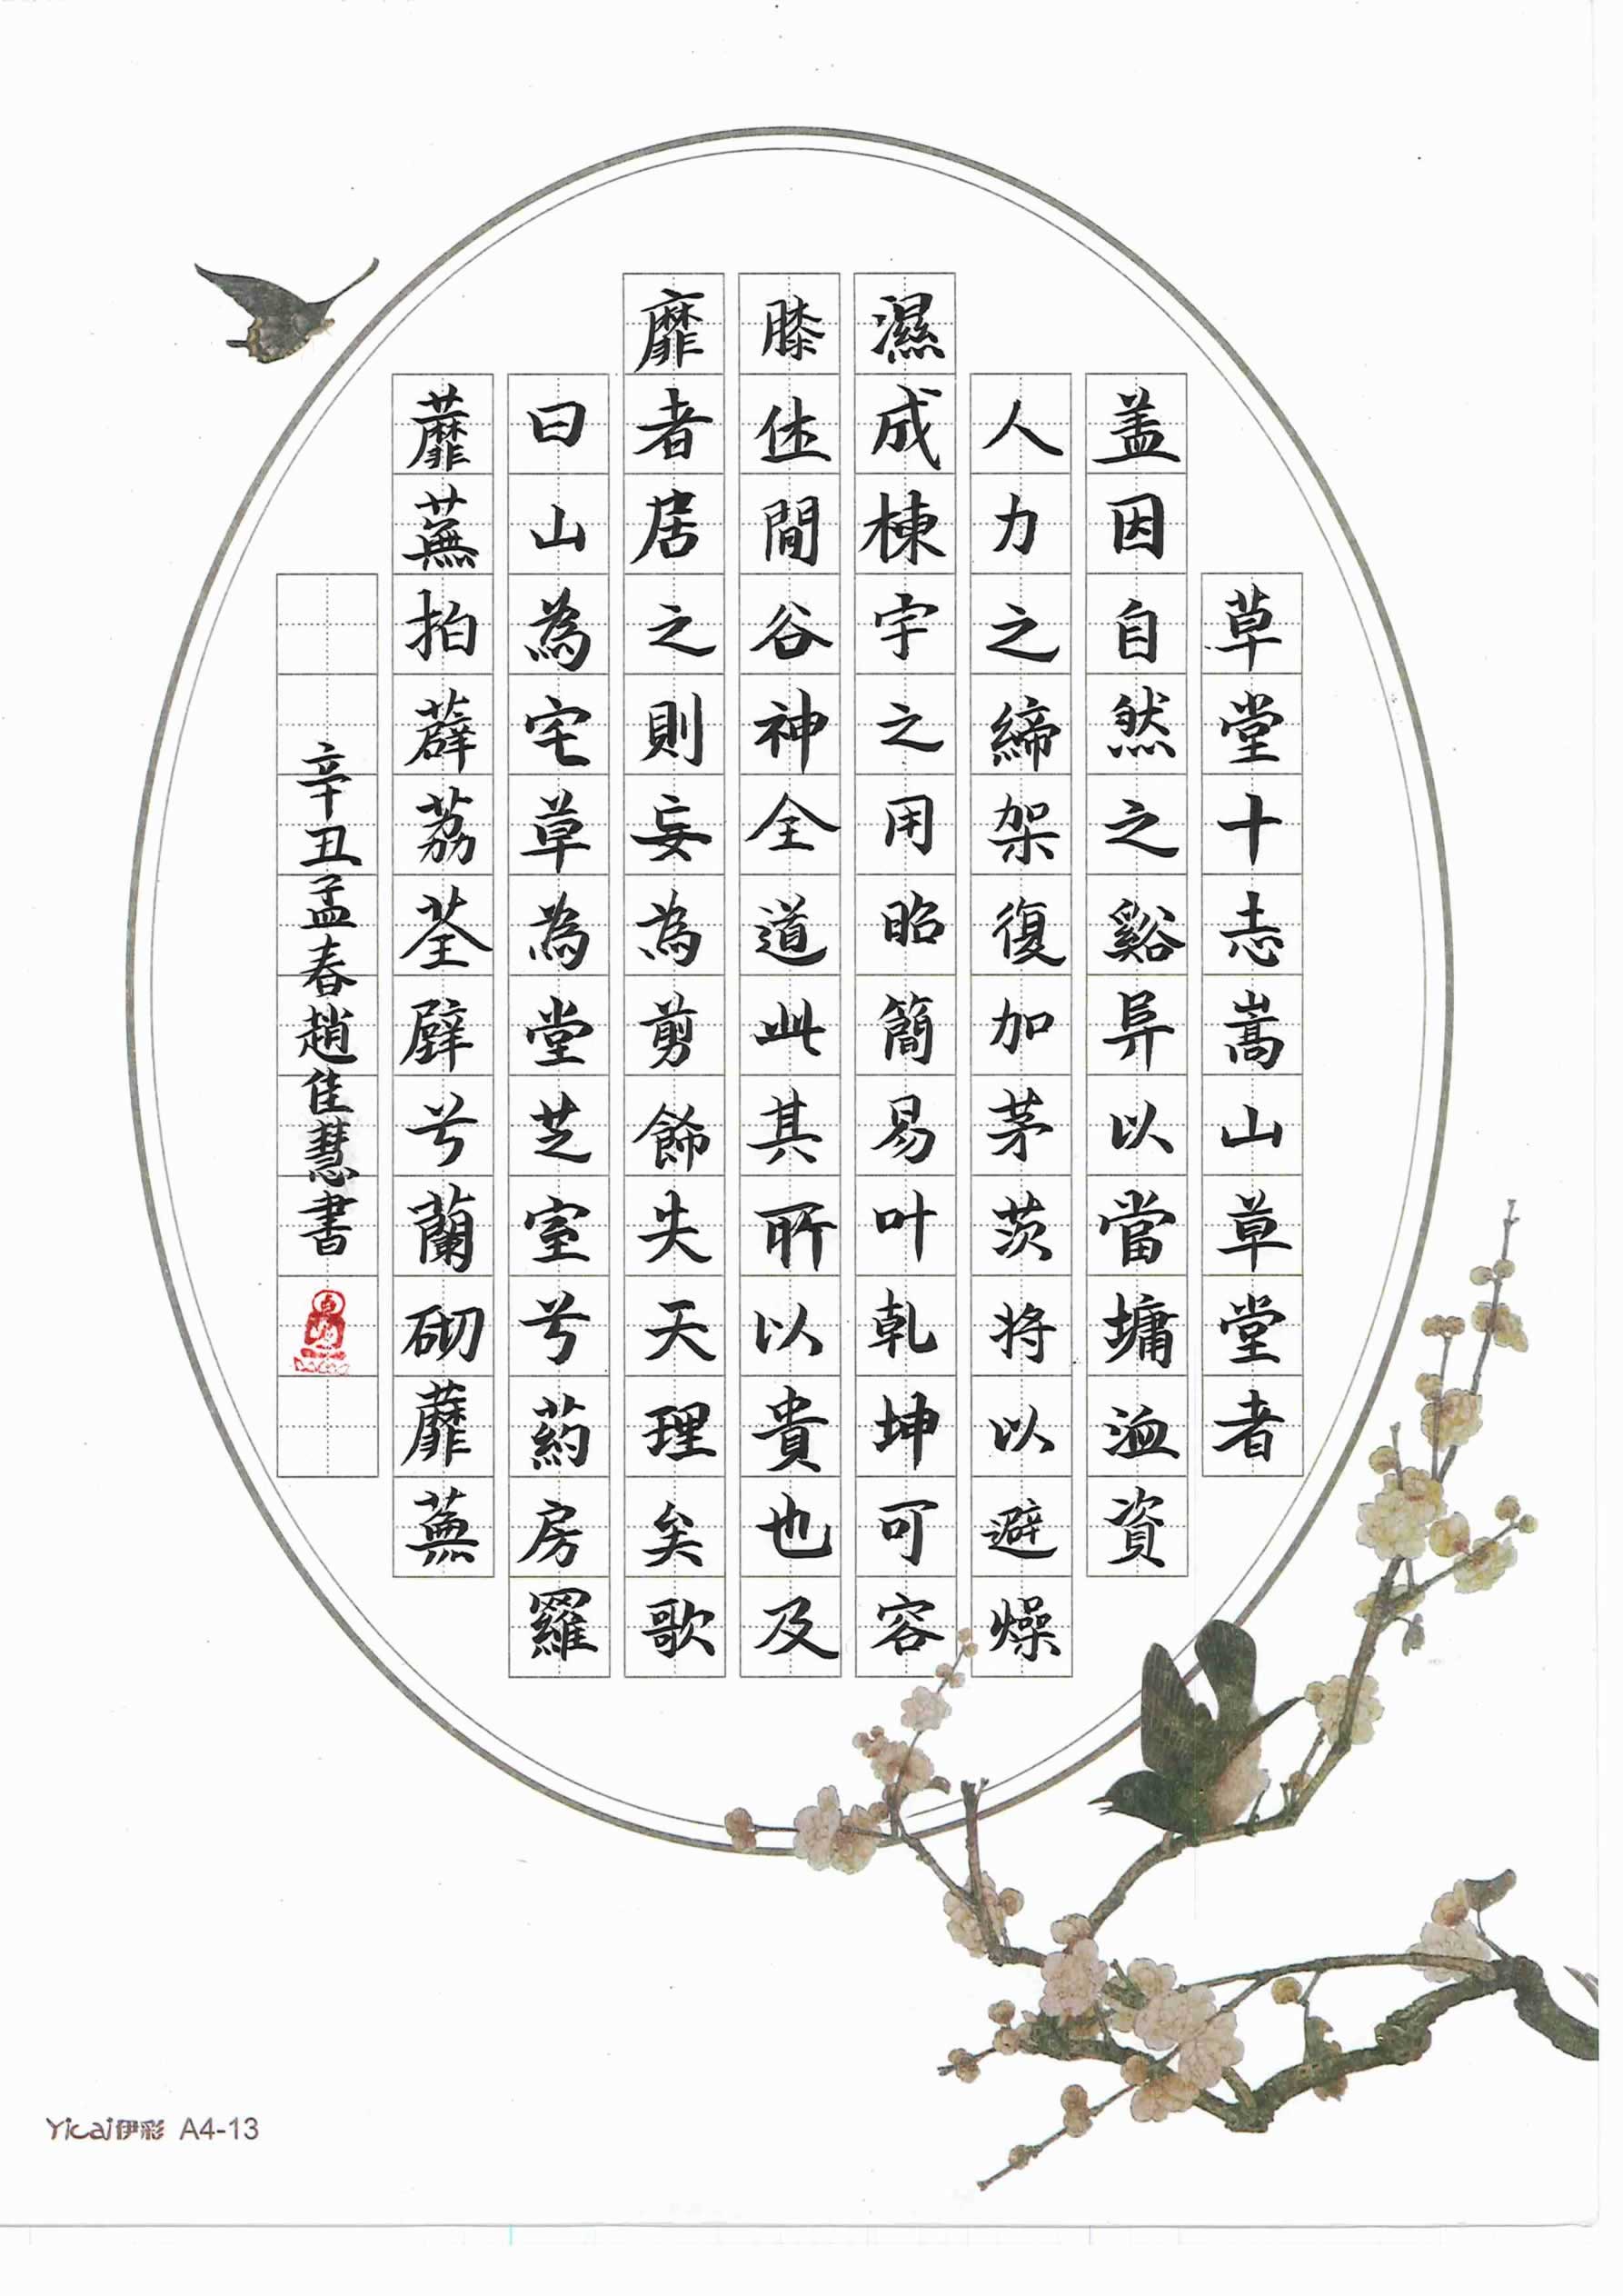 草堂十志嵩山草堂者
盖因自然之谿异以當墉洫資
人力之締架復加茅茨将以避燥
濕成棟宇之用昭簡易叶乾坤可容
膝休閒谷神全道此其所以貴也及
靡者居之則妄為剪飾失天理矣歌
曰山為宅草為堂芝室兮葯房羅
蘼蕪拍薜荔荃壁兮蘭砌蘼蕪
辛丑孟春趙佳慧書
Yicai伊彩 A4-13